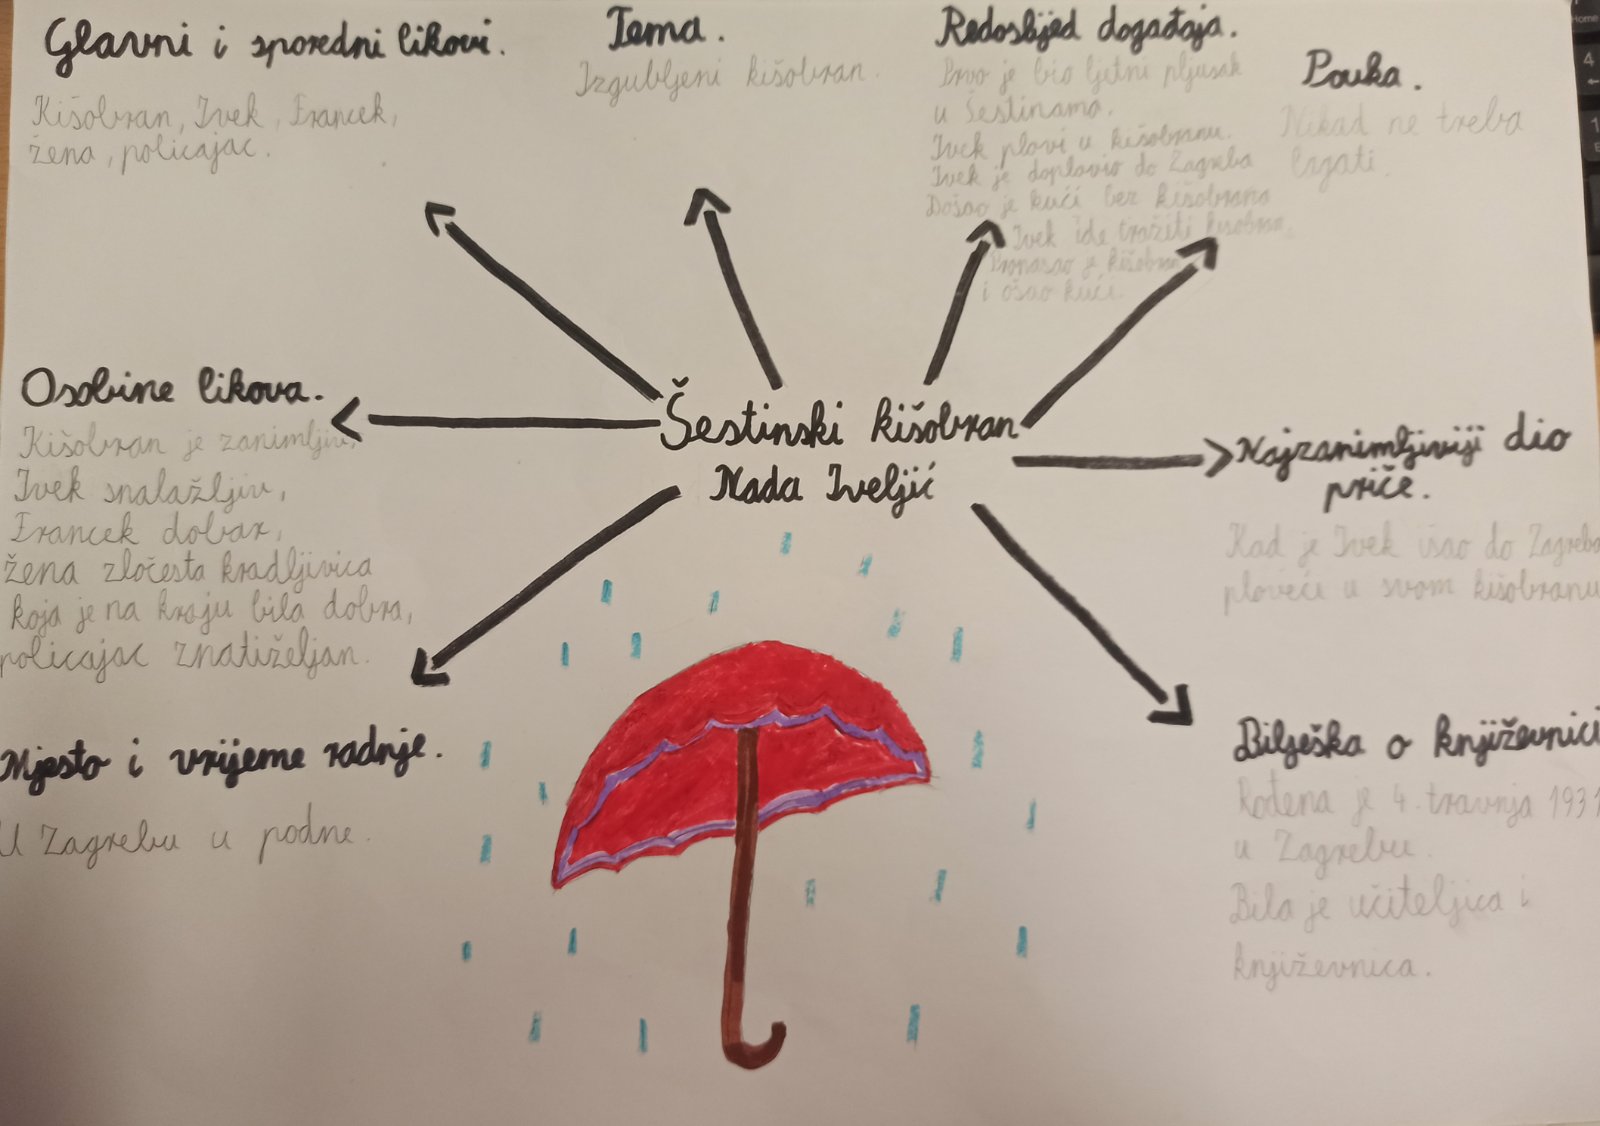 Glavni i sporedni likovi.
Kišobran, Ivek, Francek,
žena, policajac.
Tema.
Izgubljeni kišobran.
Redoslijed događaja.
Prvo je bio ljetni pljusak
u Šestinama.
Ivek plovi u kišobranu.
Ivek je doplovio do Zagreba
Došao je kući bez kišobrana
Ivek ide tražiti kišobran.
Pronašao je kišobran
i ošao kući.
Pouka.
Nikad ne treba
lagati.
Osobine likova.
Kišobran je zanimljiv,
Ivek snalažljiv,
Francek dobar,
žena zločesta kradljivica
koja je na kraju bila dobra,
policajac znatiželjan.
Šestinski kišobran
Nada Iveljić
Najzanimljiviji dio
priče.
Kad je Ivek išao do Zagreba
ploveći u svom kišobranu
Mjesto i vrijeme radnje.
U Zagrebu u podne.
Bilješka o književnici
Rođena je 4. travnja 1931
u Zagrebu.
Bila je učiteljica i
književnica.